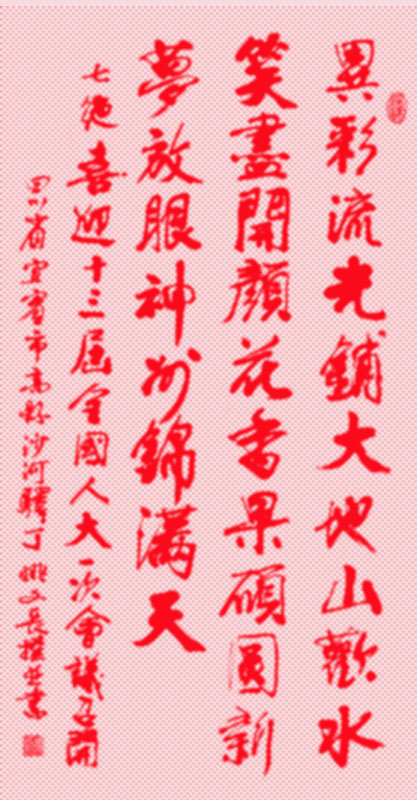 異彩流光鋪大地山歡水
笑盡開顏花香果碩圓新
夢放眼神州錦滿天
七絕喜迎十三屆全國人大一次會議召開
四川省宜賓市高縣沙河驛丁姚文長撰並書